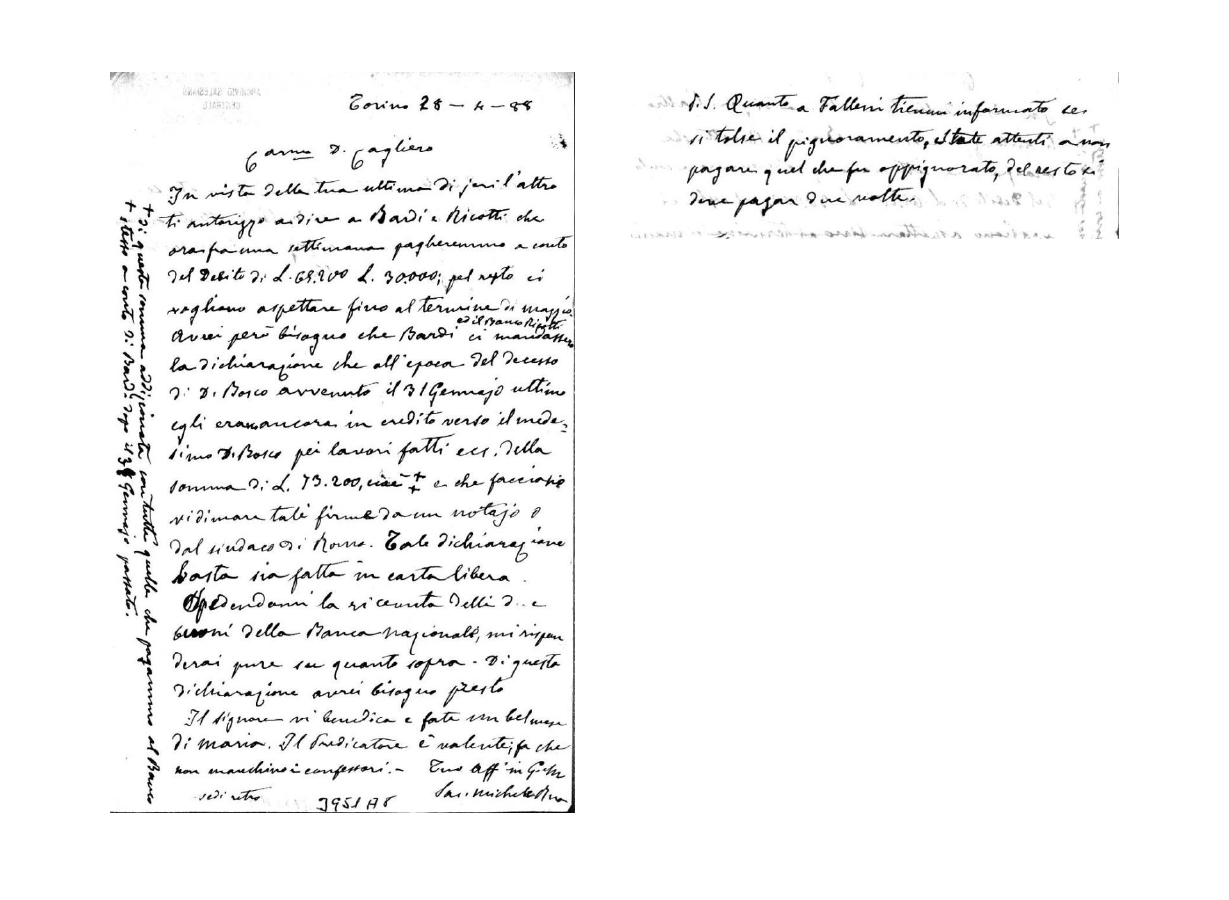 ARCHIVIO SALESIANO
CENTRALE
Torino 28 - 4 - 88
Carmo D. Cagliero
In vista della tua ultima di jeri l'altro
ti autorizzo a dire a Bardi e Ricotti che
ora fra una settimana pagheremmo a conto
del Debito di L. 69.200 L. 30000; pel resto ci
vogliano aspettare fino al termine di maggio.
Avrei però bisogno che Bardi ed il Banco Ricotti ci mandassero
la dichiarazione che all'epoca del decesso
di D. Bosco avvenuto il 31 Gennajo ultimo
egli era ancora in credito verso il mede=
simo D. Bosco pei lavori fatti ecc. della
somma di L. 73.200, ‡ e che facciasi
vidimare tale firma da un notajo o
dal sindaco di Roma. Tale dichiarazione
basta sia fatta in carta libera.
Spedendomi la ricevuta delli
della Banca nazionale, mi rispon
derai pure su quanto sopra. Di questa
dichiarazione avrei bisogno presto
Il Signore vi benedica e fate un bel mese
di Maria. Il Predicatore è valente; fa che
non manchino i confessori. - Tuo aff in G. e M.
vedi retro Sac. Michele Rua
3951 A8
‡ di questa somma addizionata con tutte quelle che pagammo al Banco
stesso a conto di Bardi dopo il 31 Gennajo passato.
P.S. Quanto a Falleni tienmi informato se
si tolse il pignoramento, e state attenti a non
pagare quel che fu oppignorato, del resto si
deve pagar due volte.